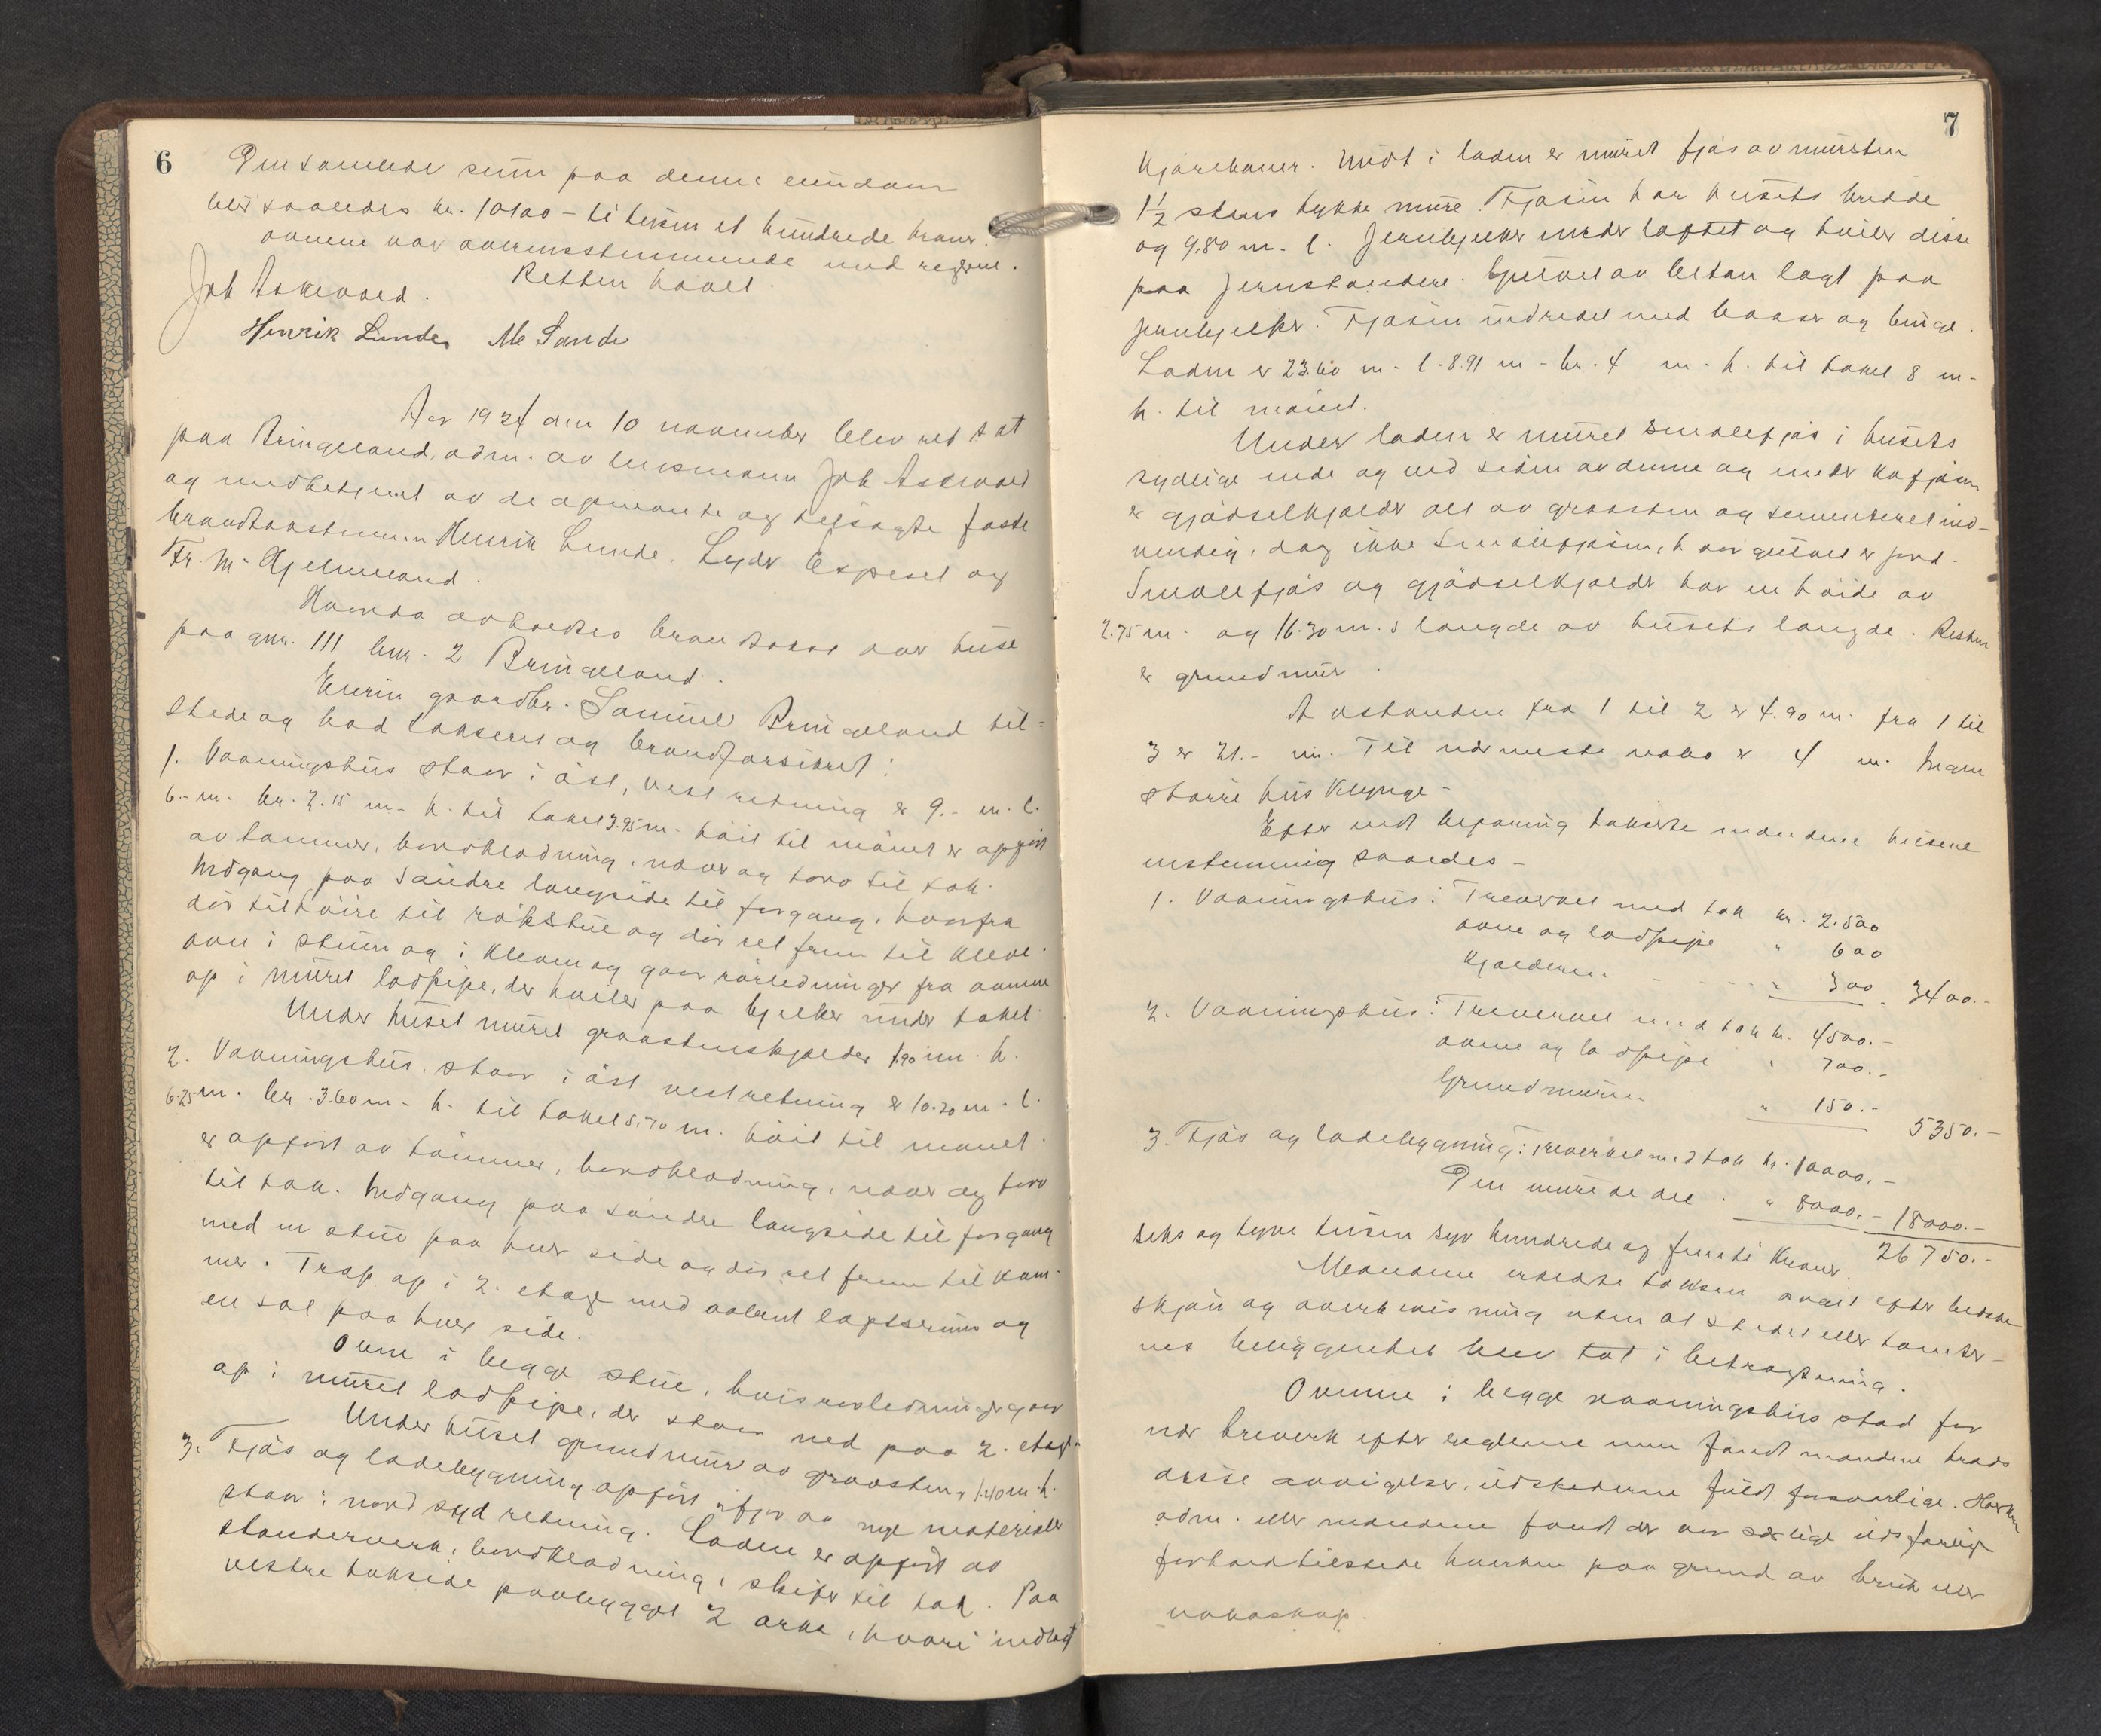 6
Den samlede sum paa denne eiendom
blir saaledes kr. 10100 - ti tusen et hundrede kroner.
ovnene var overensstemmende med reglene.
Retten hævet.
Joh Askevold.
Henrik Lunde. M Sande
Aar 1924 den 10 november blev ret sat
paa Bringeland, adm. av lensmann Joh Askevold
og medbetjent av de opnevnte og tilsagte faste
brandtakstmenn Henrik Lunde. Lyder Espeset og
Fr. M. Hjelmeland.
Hvorda avholdtes brandtakst over huse
paa gnr. 111 bnr. 2 Bringeland.
Eieren gaardbr. Samuel Bringeland til-
stede og bad taksert og brandforsikret:
1. Vaaningshus staar i øst, vest retning er 9.- m. l.
6.- m. br. 2.15 m. h. til taket 3.95 m. høit til mønet er opført
av tømmer, bordkledning, næver og torv til tak.
Indgang paa søndre langside til forgang, hvorfra
dør tilhøire til røkstue og dør ret frem til kleve.
ovn i stuen og i kleven og gaar rørledninger fra ovnene
op i muret lodpipe, der hviler paa bjelker under taket.
Under huset muret graastenskjelder 1.90 m. h.
2. Vaaningshus. staar i øst vest retning er 10.20 m. l.
6.25 m. br. 3.60 m. h. til taket 5.70 m. høit til mønet.
er opført av tømmer, bordkledning, næver og torv
til tak. Indgang paa søndre langside til forgang
med en stue paa hver side og dør ret frem til kam-
mer. Trap op i 2. etage med aapent loftsrum og
en sal paa hver side.
Ovne i begge stue, hvis rørledninger gaar
op i muret lodpipe, der staar ned paa 2. etage.
Under huset grundmur av graasten, 1.40 m. h.
3. Fjøs og ladebygning opført ifjor av nye materialer
staar i nord syd retning. Laden er opført av
stenderverk, bordkledning, skifer til tak. Paa
vestre takside paabygget 2 arke, hvori indlagt
7
kjørebaner. Midt i laden er muret fjøs av mursten
1½ stens tykke mure. Fjøsen har husets bredde
og 9.80 m. l. Jernbjelker under loftet og hviler disse
paa jernstendere. Gulvet av betan lagt paa
jernbjelker. Fjøsen indredet med baaser og binge.
Laden er 23.60 m. l. 8.91 m. br. 4 m. h. til taket 8 m.
h. til mønet.
Under laden er muret smalefjøs i husets
sydlige ende og ved siden av denne og under kufjøsen
er gjødselkjelder alt av graasten og sementeret ind-
vendig, dog ikke smalefjøsen, hvor gulvet er jord.
Smalefjøs og gjødselkjelder har en høide av
2.75 m. og 16.30 m. i længde av husets længde. Resten
er grundmur.
Avstanden fra 1 til 2 er 4.90 m. fra 1 til
3 er 21.- m. Til nærmeste nabo er 4 m. Ingen
større hus klynge -
Efter endt befaring takserte mændene husene
enstemmig saaledes -
1. Vaaningshus: Treverket med tak kr. 2.500
ovne og lodpipe " 600
kjelderen. " 300 3400.-
2. Vaaningshus: Treverket med tak kr. 4500.-
ovne og lodpipe " 700.-
Grundmuren " 150.- 5350.-
3. Fjøs og ladebygning: treverket med tak kr. 10000.-
Den murede del. " 8000.- 18000.-
seks og tyve tusen syv hundrede og femti kroner. 26750.-
Mændene erklærte taksen avgit efter bedste
skjøn og overbevisning uten at stedet eller tomter-
nes beliggenhet blev tat i betragtning.
Ovnene i begge vaaningshus stod for
nær treverk efter reglene men fandt mændene trods
disse avvigelser, ildstederne fuldt forsvarlige. Hverken
adm. eller mændene fandt der var særlige ildsfarlige
forhold tilstede hverken paa grund av bruk eller
naboskap.